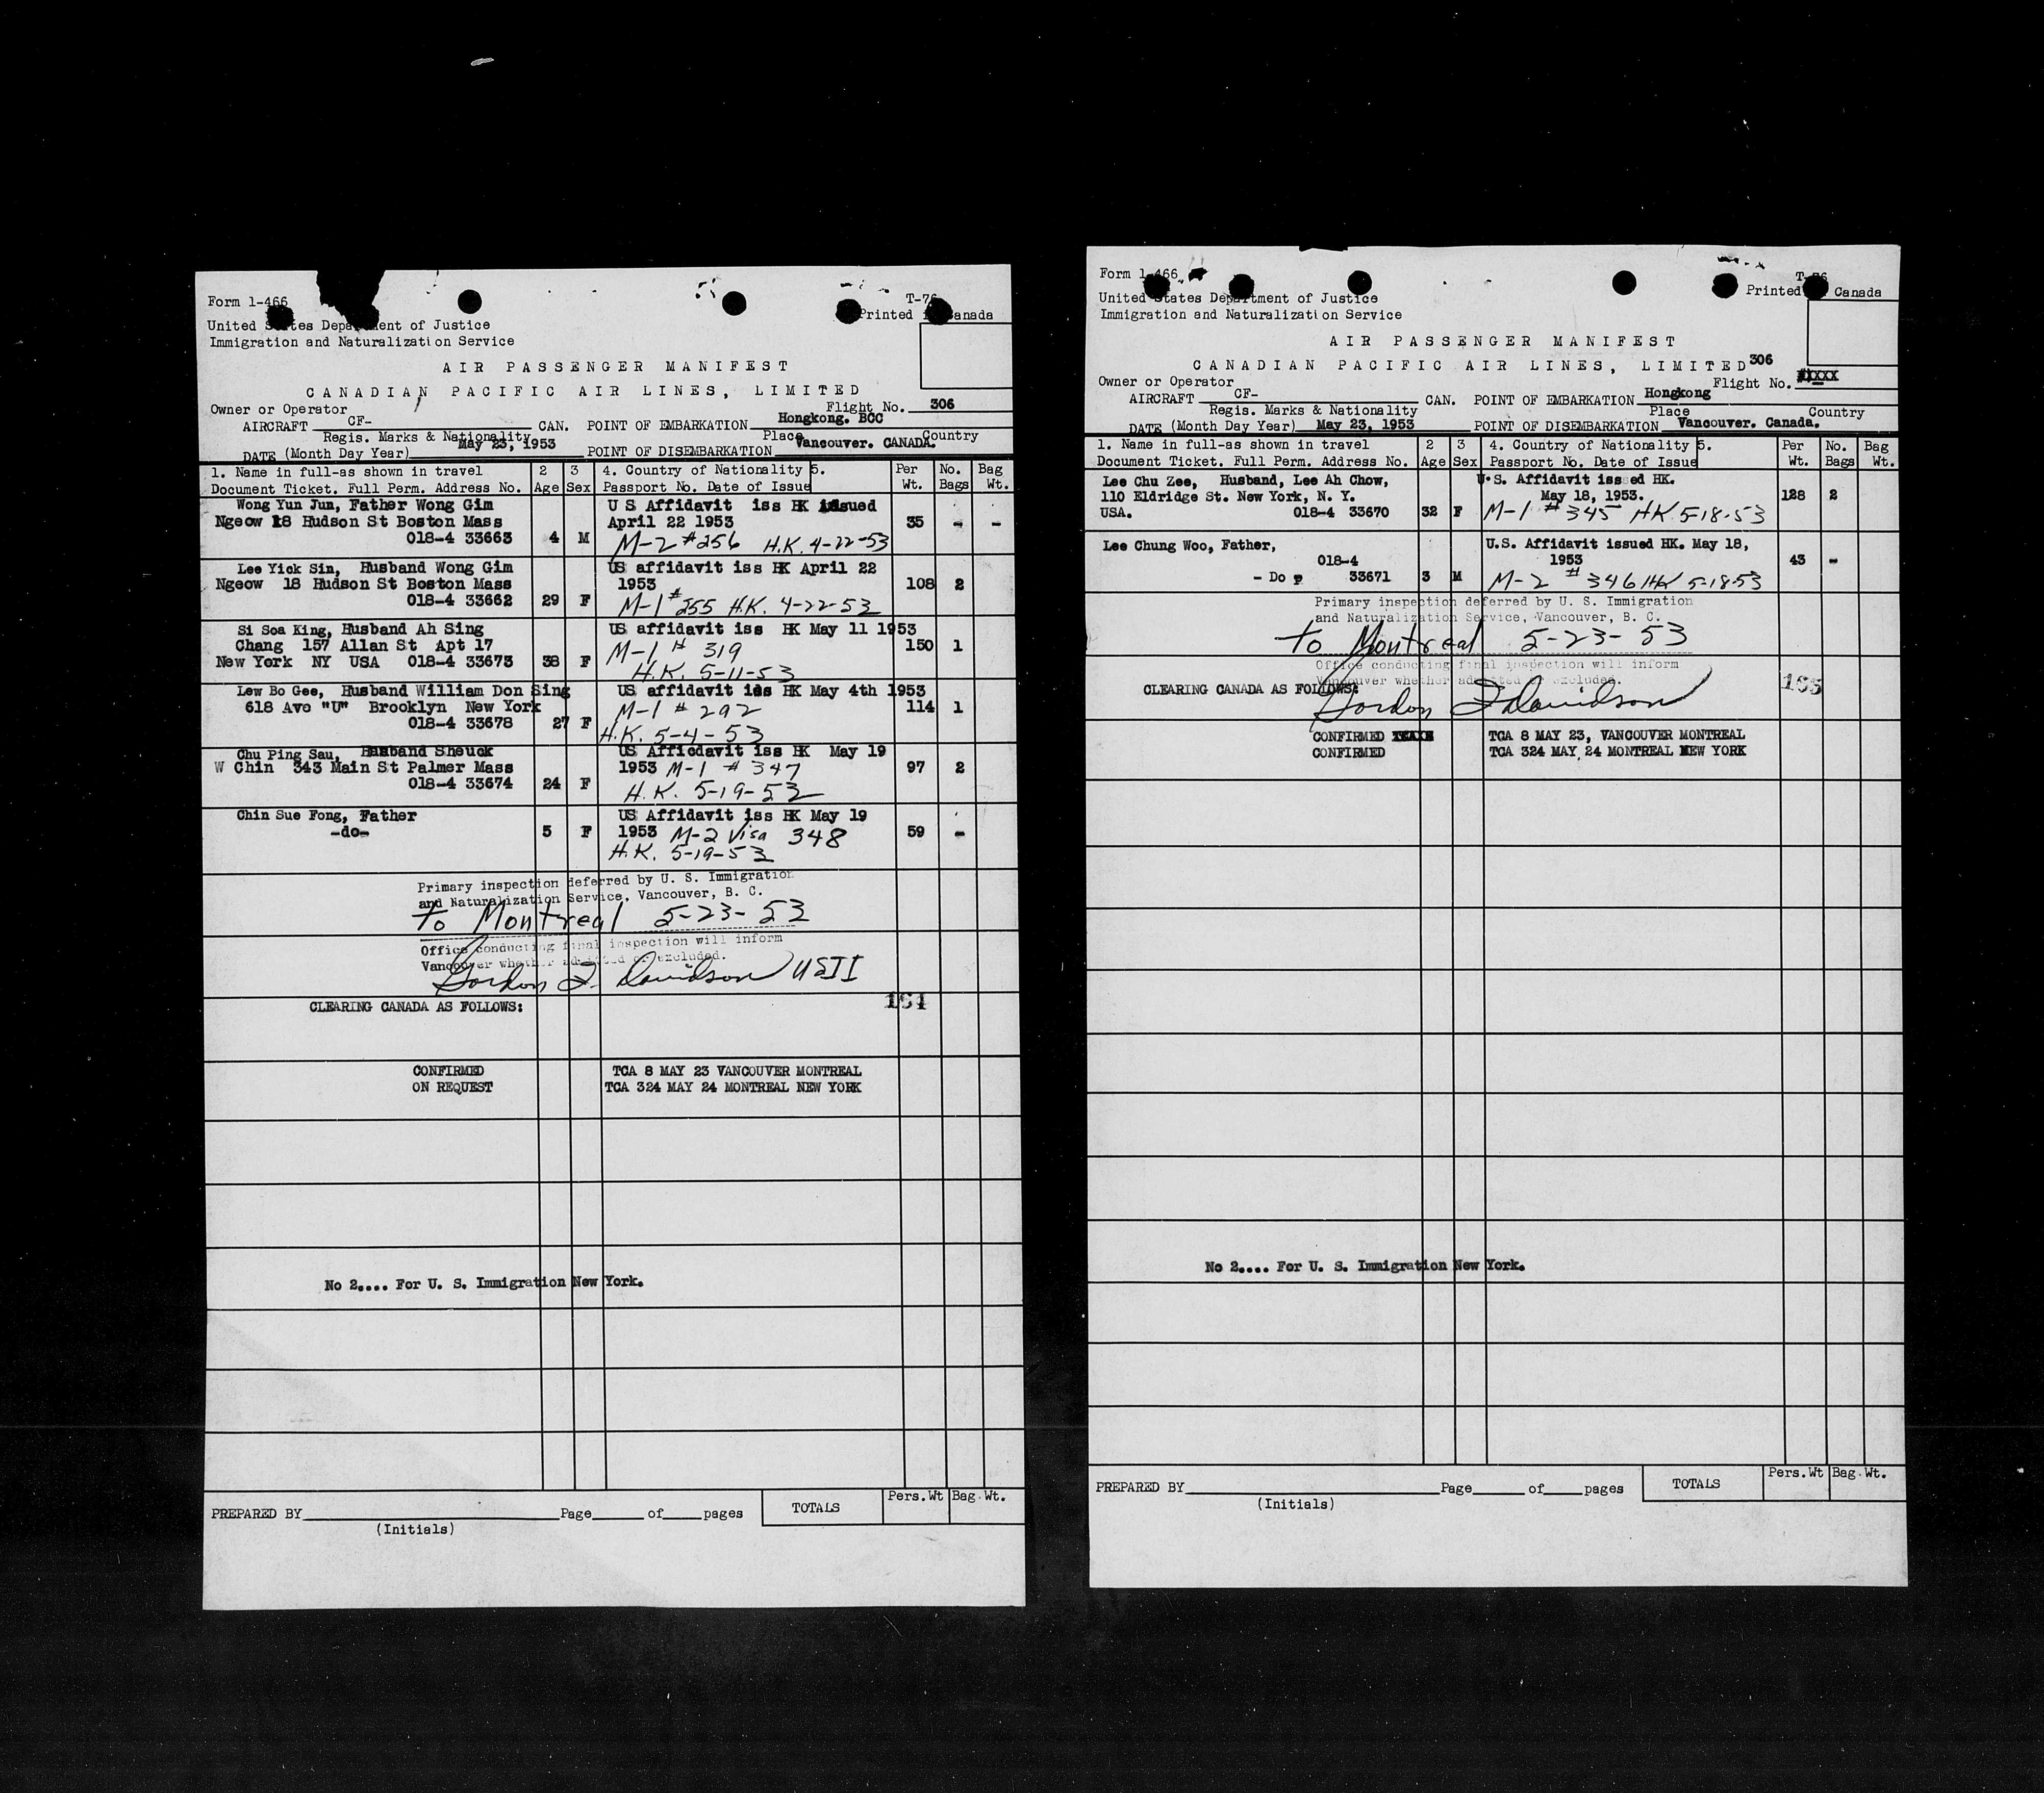 Form 1-466
T-76
Printed Canada
United States Department of Justice
Immigration and Naturalization Service
AIR PASSENGER MANIFEST
CANADIAN PACIFIC AIR LINES, LIMITED
Owner or Operator
Flight No. 306
AIRCRAFT CF- CAN. POINT OF EMBARKATION Hongkong. BCC
Regis. Marks & Nationality Place Country
DATE (Month Day Year) May 23, 1953 POINT OF DISEMBARKATION Vancouver. CANADA.
1. Name in full-as shown in travel 2 3 4. Country of Nationality 5. Per No. Bag
Document Ticket. Full Perm. Address No. Age Sex Passport No. Date of Issue Wt. Bags Wt.
Wong Yun Jun, Father Wong Gim U S Affidavit iss HK issued
Ngeow 18 Hudson St Boston Mass April 22 1953 35 - -
018-4 33663 4 M M-2 #256 H.K. 4-22-53
Lee Yick Sin, Husband Wong Gim US affidavit iss HK April 22
Ngeow 18 Hudson St Boston Mass 1953 108 2
018-4 33662 29 F M-1 #255 H.K. 4-22-53
Si Soa King, Husband Ah Sing US affidavit iss HK May 11 1953
Chang 157 Allan St Apt 17 M-1 # 319 150 1
New York NY USA 018-4 33673 38 F H.K. 5-11-53
Lew Bo Gee, Husband William Don Sing US affidavit iss HK May 4th 1953
618 Ave "U" Brooklyn New York M-1 # 292 114 1
018-4 33678 27 F H.K. 5-4-53
Chu Ping Sau, Husband Sheuck US Afficdavit iss HK May 19
W Chin 343 Main St Palmer Mass 1953 M-1 # 347 97 2
018-4 33674 24 F H.K. 5-19-53
Chin Sue Fong, Father US Affidavit iss HK May 19
-do- 5 F 1953 M-2 Visa 348 59 -
H.K. 5-19-53
Primary inspection deferred by U. S. Immigration
and Naturalization Service, Vancouver, B. C.
to Montreal 5-23-53
Office conducting final inspection will inform
Vancouver whether admitted or excluded.
Gordon F Davidson USII
CLEARING CANADA AS FOLLOWS: 164
CONFIRMED TCA 8 MAY 23 VANCOUVER MONTREAL
ON REQUEST TCA 324 MAY 24 MONTREAL NEW YORK
No 2.... For U. S. Immigration New York.
PREPARED BY Page of pages TOTALS Pers.Wt Bag.Wt.
(Initials)
Form 1-466
T-76
Printed Canada
United States Department of Justice
Immigration and Naturalization Service
AIR PASSENGER MANIFEST
CANADIAN PACIFIC AIR LINES, LIMITED 306
Owner or Operator Flight No.
AIRCRAFT CF- CAN. POINT OF EMBARKATION Hongkong
Regis. Marks & Nationality Place Country
DATE (Month Day Year) May 23, 1953 POINT OF DISEMBARKATION Vancouver. Canada.
1. Name in full-as shown in travel 2 3 4. Country of Nationality 5. Per No. Bag
Document Ticket. Full Perm. Address No. Age Sex Passport No. Date of Issue Wt. Bags Wt.
Lee Chu Zee, Husband, Lee Ah Chow, U.S. Affidavit issued HK.
110 Eldridge St. New York, N. Y. May 18, 1953. 128 2
USA. 018-4 33670 32 F M-1 # 345 HK 5-18-53
Lee Chung Woo, Father, U.S. Affidavit issued HK. May 18,
018-4 1953 43 -
- Do 33671 3 M M-2 # 346 HK 5-18-53
Primary inspection deferred by U. S. Immigration
and Naturalization Service, Vancouver, B. C.
to Montreal 5-23-53
Office conducting final inspection will inform
Vancouver whether admitted or excluded.
CLEARING CANADA AS FOLLOWS: 165
Gordon F Davidson
CONFIRMED TCA 8 MAY 23, VANCOUVER MONTREAL
CONFIRMED TCA 324 MAY 24 MONTREAL NEW YORK
No 2.... For U. S. Immigration New York.
PREPARED BY Page of pages TOTALS Pers.Wt Bag.Wt.
(Initials)